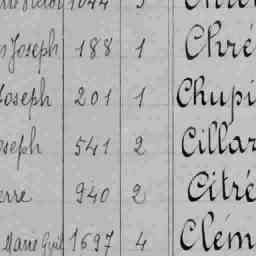 Joseph 188 1 Chré
Joseph 201 1 Chupi
oseph 541 2 Cillar
erre 940 2 Citré
Marie 1697 4 Clém